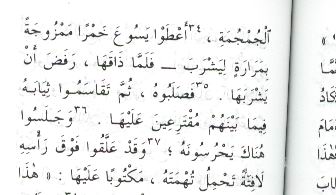 ٱلْجُمْجُمَةِ ، ٣٤أَعْطَوْا يَسُوعَ خَمْرًا مَمْزُوجَةً
بِمَرَارَةٍ لِيَشْرَبَ ـــ فَلَمَّا ذَاقَهَا ، رَفَضَ أَنْ
يَشْرَبَهَا . ٣٥فَصَلَبُوهُ ، ثُمَّ تَقَاسَمُوا ثِيَابَهُ
فِيمَا بَيْنَهُمْ مُقْتَرِعِينَ عَلَيْهَا . ٣٦وَجَلَسُوا
هُنَاكَ يَحْرُسُونَهُ ؛ ٣٧وَقَدْ عَلَّقُوا فَوْقَ رَأْسِهِ
لَافِتَةً تَحْمِلُ تُهْمَتَهُ ، مَكْتُوبًا عَلَيْهَا : « هٰذَا